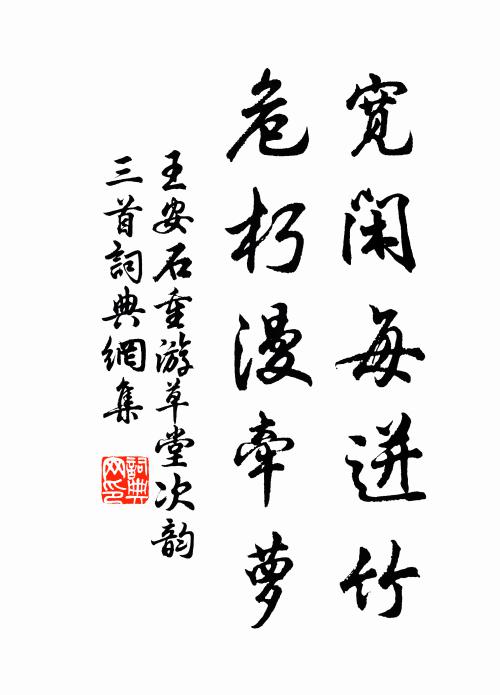 寬閑每迸竹
危朽漫牽蘿
王安石重游草堂次韵
三首詞典網集
詞典
网印